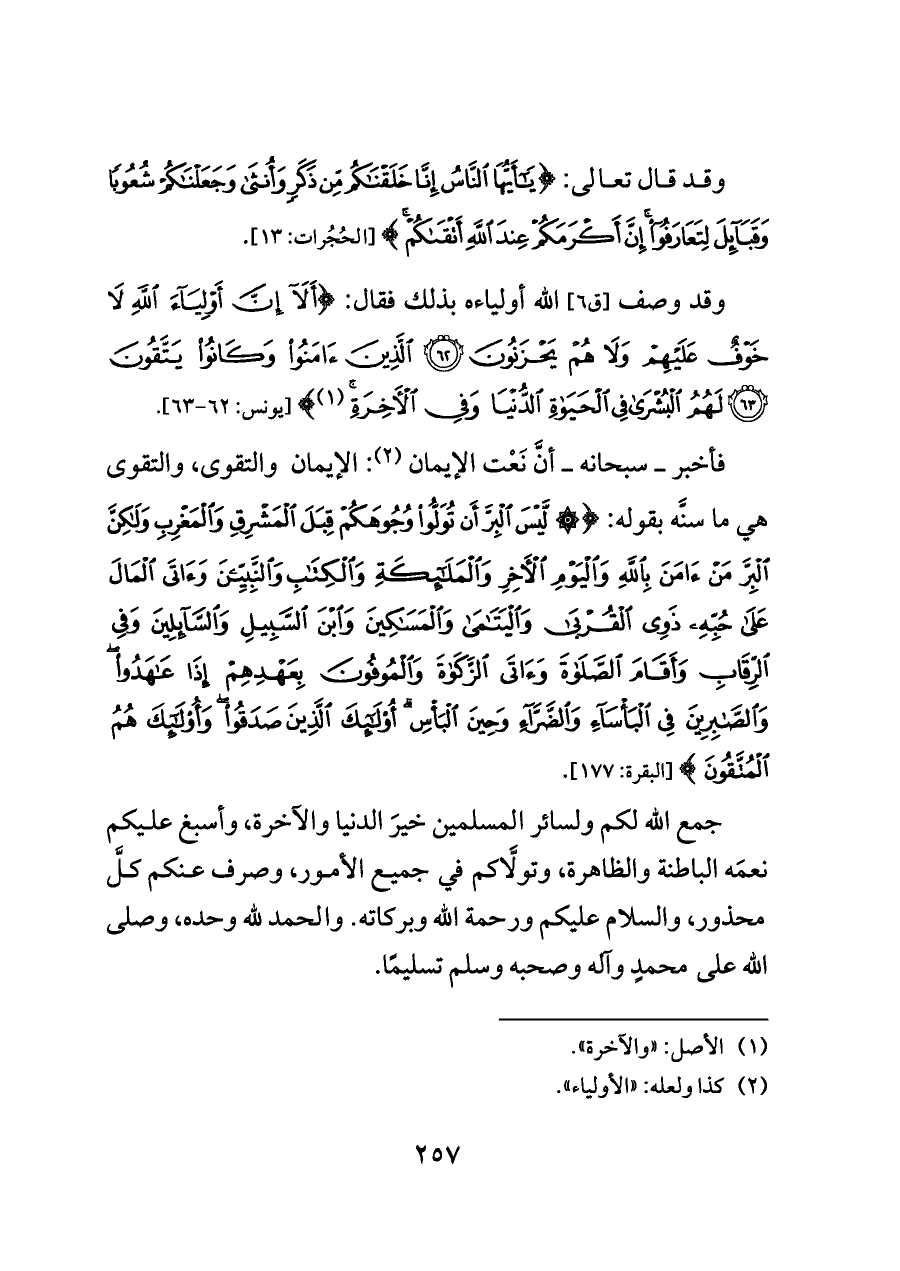 وقد قال تعالى: ﴿ يَٰٓأَيُّهَا ٱلنَّاسُ إِنَّا خَلَقۡنَٰكُم مِّن ذَكَرٖ وَأُنثَىٰ وَجَعَلۡنَٰكُمۡ شُعُوبٗا
وَقَبَآئِلَ لِتَعَارَفُوٓاْۚ إِنَّ أَكۡرَمَكُمۡ عِندَ ٱللَّهِ أَتۡقَىٰكُمۡۚ ﴾ [الحُجُرات: ١٣].
وقد وصف [ق٦] الله أولياءه بذلك فقال: ﴿أَلَآ إِنَّ أَوۡلِيَآءَ ٱللَّهِ لَا
خَوۡفٌ عَلَيۡهِمۡ وَلَا هُمۡ يَحۡزَنُونَ ٦٢ ٱلَّذِينَ ءَامَنُواْ وَكَانُواْ يَتَّقُونَ
٦٣ لَهُمُ ٱلۡبُشۡرَىٰ فِي ٱلۡحَيَوٰةِ ٱلدُّنۡيَا وَفِي ٱلۡأٓخِرَةِۚ (١)﴾ [يونس: ٦٢-٦٣].
فأخبر ـ سبحانه ـ أنَّ نَعْت الإيمان (٢): الإيمان والتقوى، والتقوى
هي ما سنَّه بقوله: ﴿ ۞ لَّيۡسَ ٱلۡبِرَّ أَن تُوَلُّواْ وُجُوهَكُمۡ قِبَلَ ٱلۡمَشۡرِقِ وَٱلۡمَغۡرِبِ وَلَٰكِنَّ
ٱلۡبِرَّ مَنۡ ءَامَنَ بِٱللَّهِ وَٱلۡيَوۡمِ ٱلۡأٓخِرِ وَٱلۡمَلَٰٓئِكَةِ وَٱلۡكِتَٰبِ وَٱلنَّبِيِّـۧنَ وَءَاتَى ٱلۡمَالَ
عَلَىٰ حُبِّهِۦ ذَوِي ٱلۡقُرۡبَىٰ وَٱلۡيَتَٰمَىٰ وَٱلۡمَسَٰكِينَ وَٱبۡنَ ٱلسَّبِيلِ وَٱلسَّآئِلِينَ وَفِي
ٱلرِّقَابِ وَأَقَامَ ٱلصَّلَوٰةَ وَءَاتَى ٱلزَّكَوٰةَ وَٱلۡمُوفُونَ بِعَهۡدِهِمۡ إِذَا عَٰهَدُواْۖ
وَٱلصَّٰبِرِينَ فِي ٱلۡبَأۡسَآءِ وَٱلضَّرَّآءِ وَحِينَ ٱلۡبَأۡسِۗ أُوْلَٰٓئِكَ ٱلَّذِينَ صَدَقُواْۖ وَأُوْلَٰٓئِكَ هُمُ
ٱلۡمُتَّقُونَ ﴾ [البقرة: ١٧٧].
جمع الله لكم ولسائر المسلمين خيرَ الدنيا والآخرة، وأسبغ عليكم
نعمَه الباطنة والظاهرة، وتولَّاكم في جميع الأمور، وصرف عنكم كلَّ
محذور، والسلام عليكم ورحمة الله وبركاته. والحمد لله وحده، وصلى
الله على محمدٍ وآله وصحبه وسلم تسليمًا.
(١) الأصل: «والآخرة».
(٢) كذا ولعله: «الأولياء».
٢٥٧